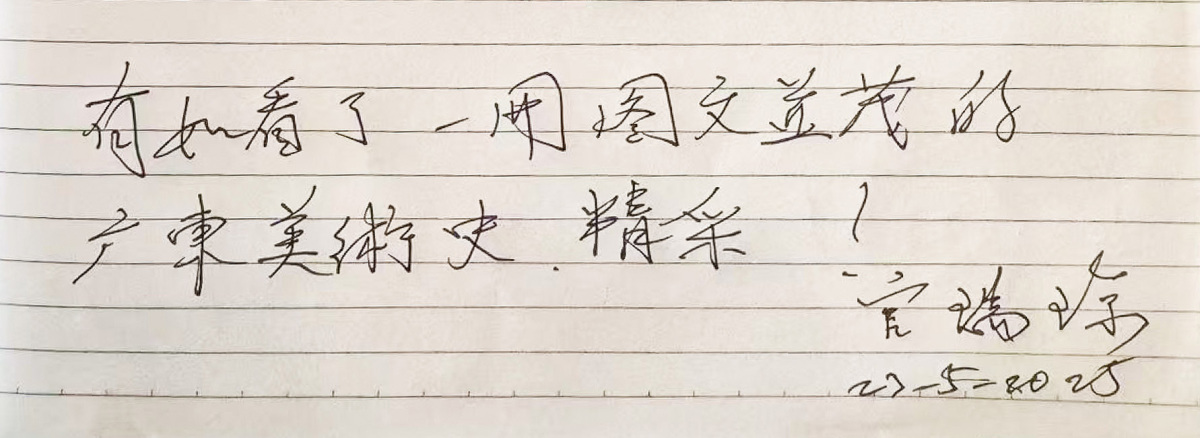 有如看了一册图文並茂的
广東美術史.精采!
官瑞琼
23-5-2025